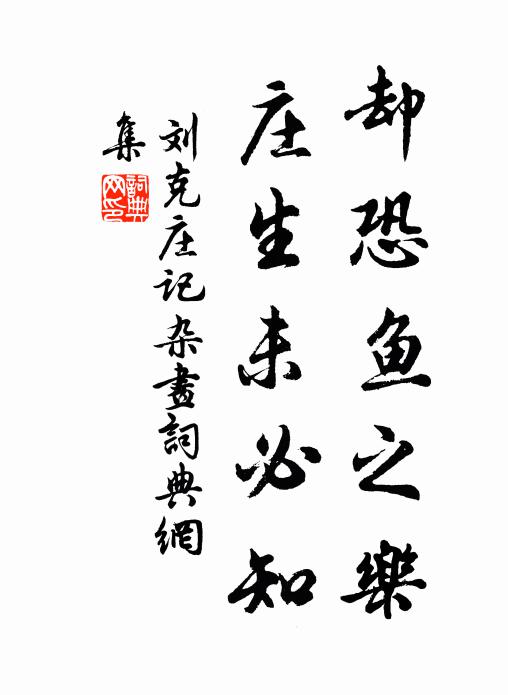 却恐鱼之樂
庄生未必知
刘克庄记杂畫詞典網
集
詞典网印